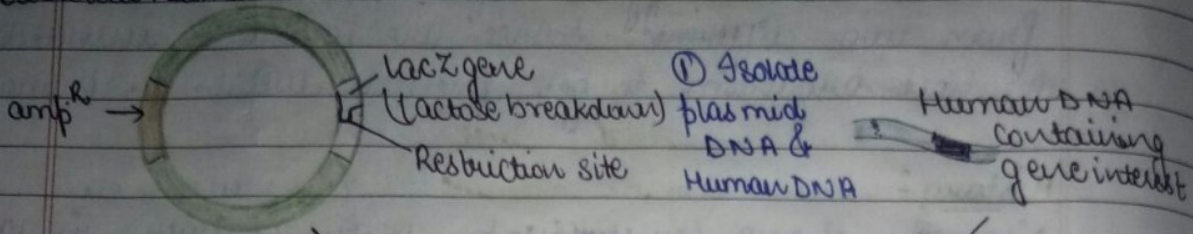 amp^R →
lacZ gene
(lactose breakdown)
Restriction site
① Isolate
plasmid
DNA &
Human DNA
Human DNA
containing
gene interest